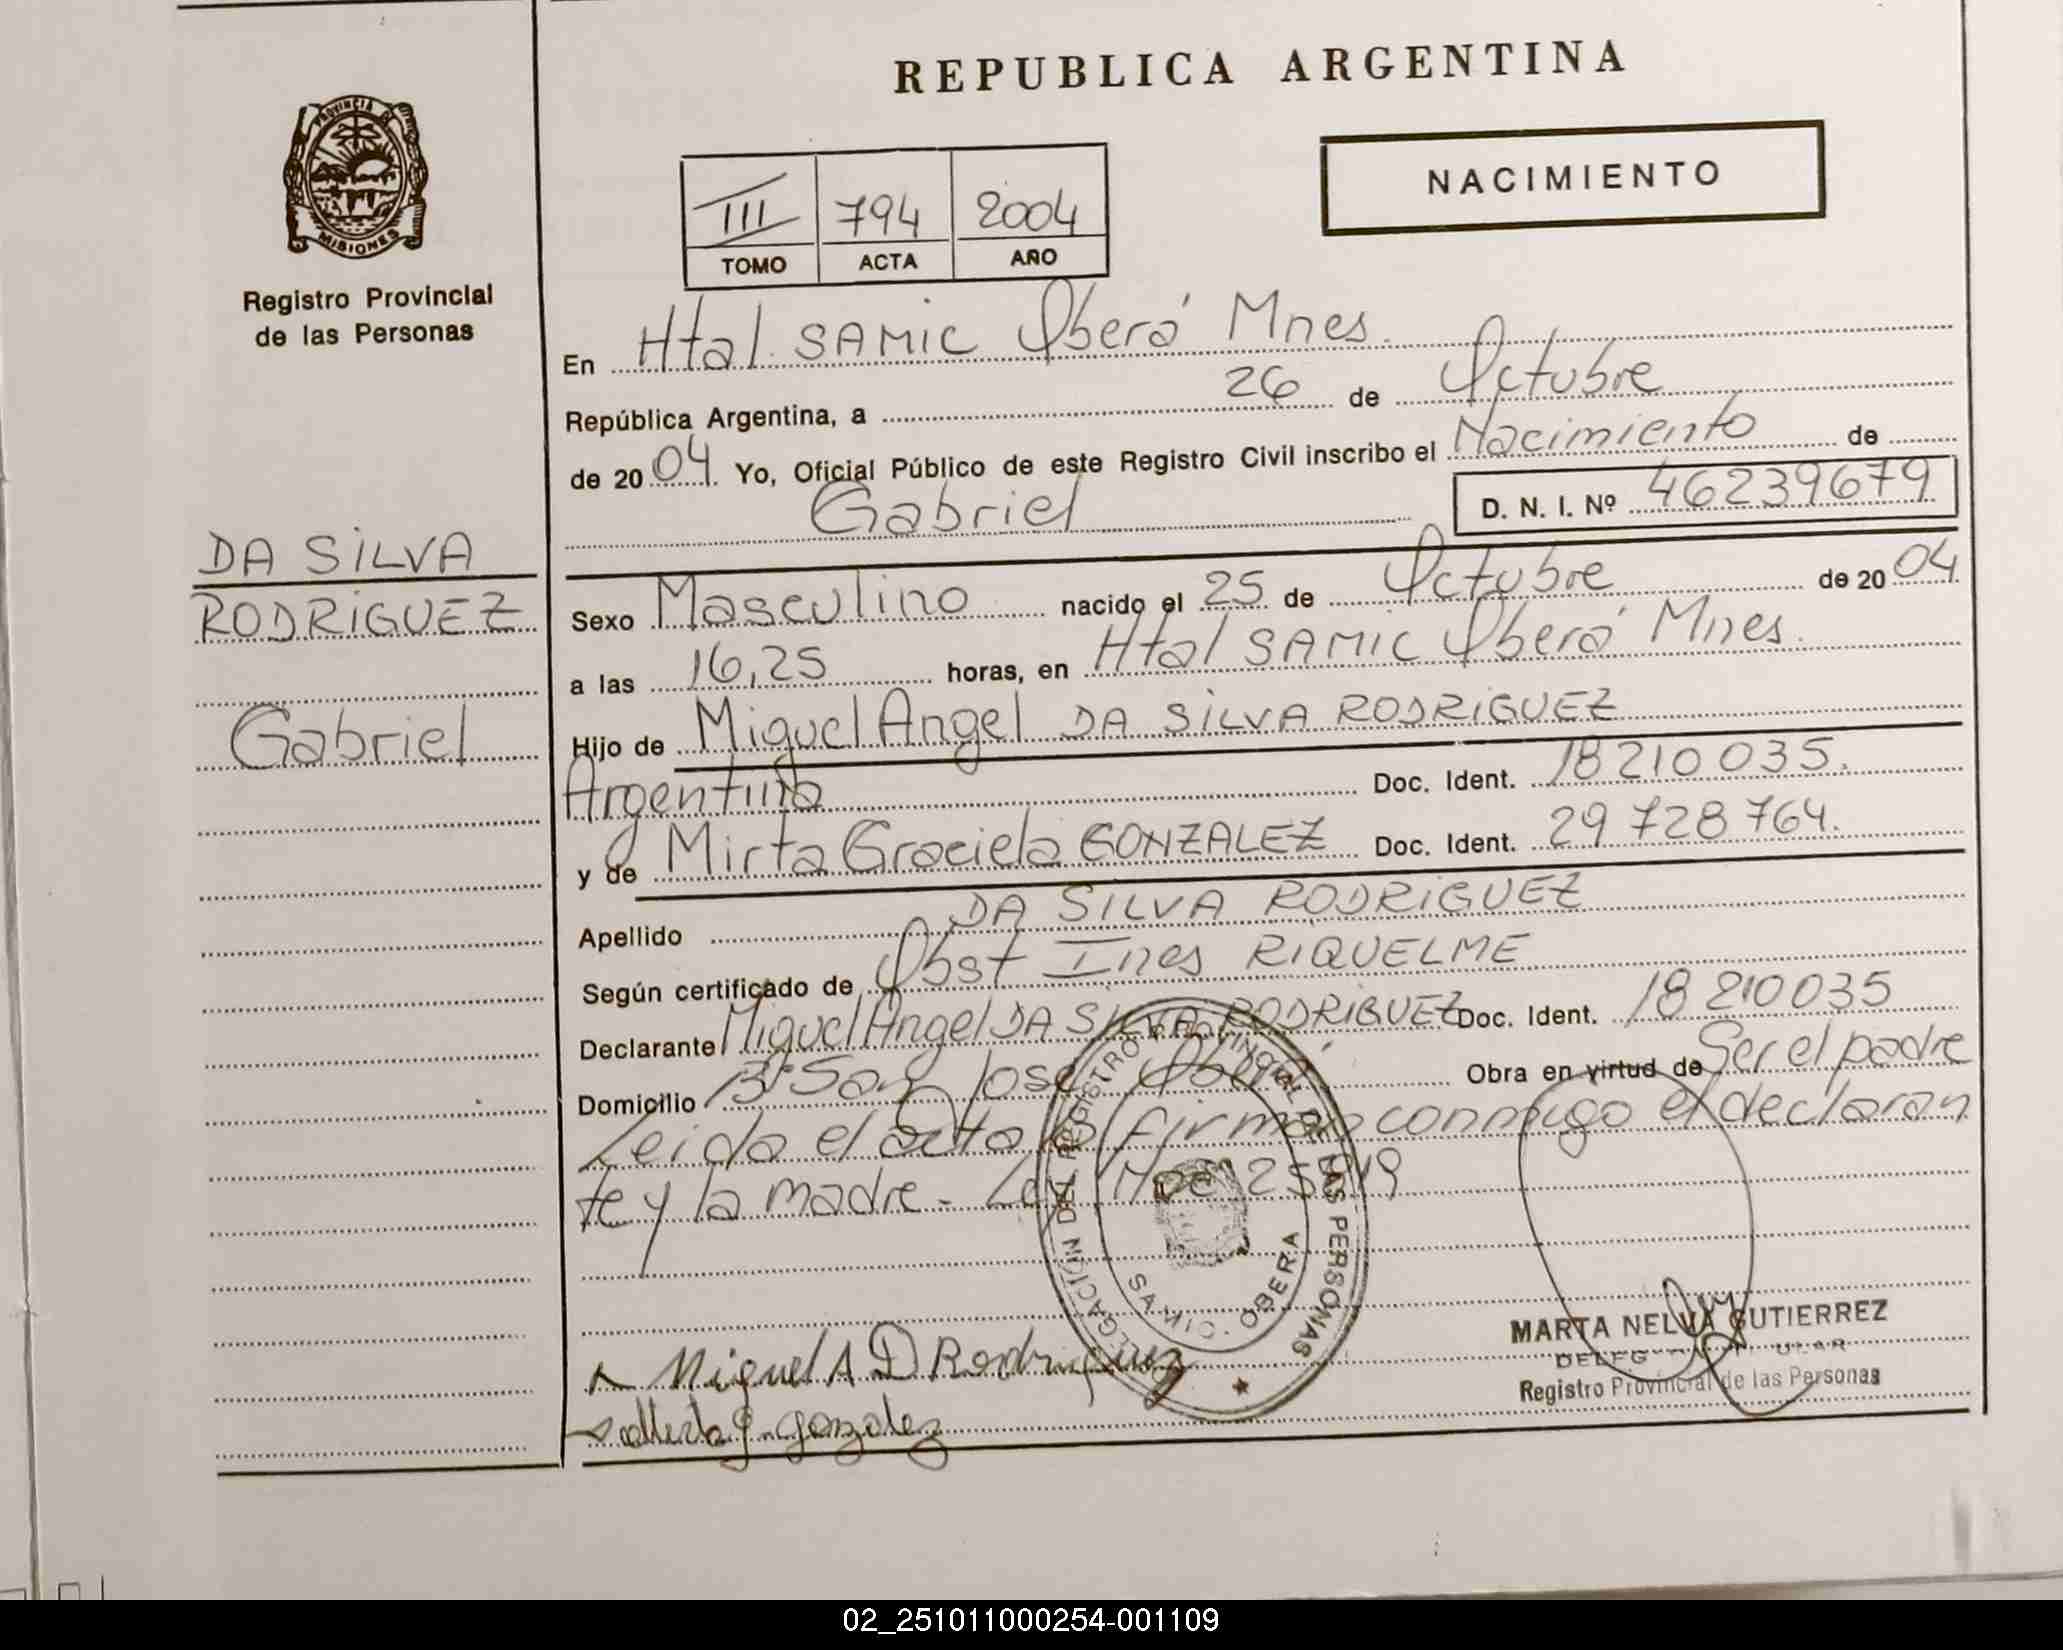 REPUBLICA ARGENTINA
PROVINCIA DE
MISIONES
Registro Provincial
de las Personas
III 794 2004
TOMO ACTA AÑO
NACIMIENTO
En Htal. SAMIC Oberá Mnes.
República Argentina, a 26 de Octubre
de 2004. Yo, Oficial Público de este Registro Civil inscribo el Nacimiento de
Gabriel D. N. I. Nº 46239679
DA SILVA
RODRIGUEZ
Gabriel
Sexo Masculino nacido el 25 de Octubre de 2004
a las 16,25 horas, en Htal SAMIC Oberá Mnes.
Hijo de Miguel Angel DA SILVA RODRIGUEZ
Argentina Doc. Ident. 18210035.
y de Mirta Graciela GONZALEZ Doc. Ident. 29728764.
Apellido DA SILVA RODRIGUEZ
Según certificado de Obst Ines RIQUELME
Declarante Miguel Angel DA SILVA RODRIGUEZ Doc. Ident. 18210035
Domicilio Bº San José Oberá Obra en virtud de Ser el padre
Leida el acta la firman conmigo el declaran
te y la madre - Ley
DELEGACION DEL REGISTRO PROVINCIAL DE LAS PERSONAS
OBERA
Miguel A D Rodriguez
gonzalez
MARTA NELVA GUTIERREZ
Registro Provincial de las Personas
02_251011000254-001109